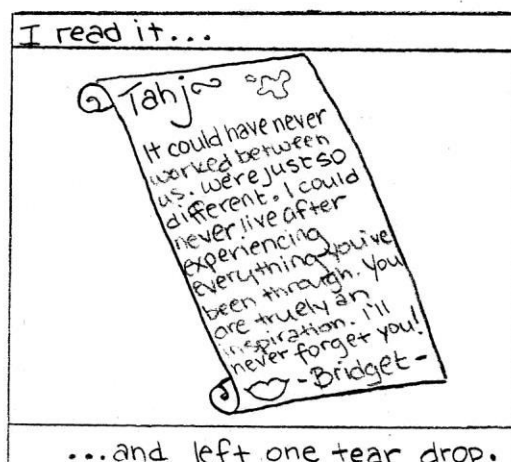 I read it...
Tahj~
It could have never
worked between
us. we're just so
different. I could
never live after
experiencing
everything you've
been through. You
are truely an
inspiration. I'll
never forget you!
-Bridget-
...and left one tear drop.